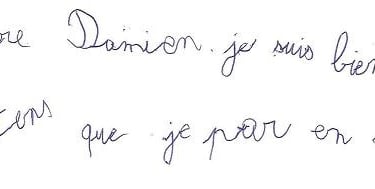 Damien. je suis bien
que je par en